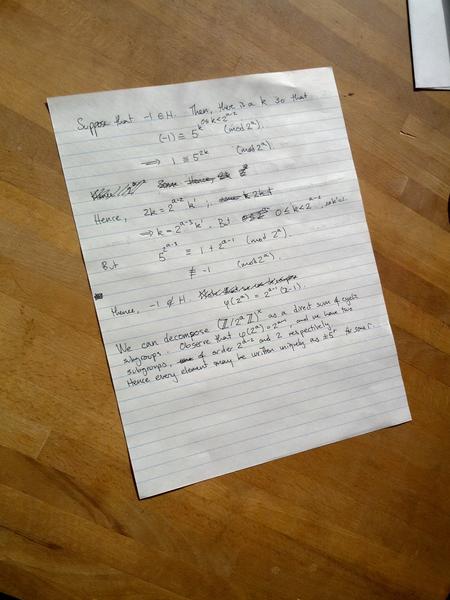 Suppose that -1 ∈ H. Then, there is a k so that
0≤k<2^{a-2}
(-1) ≡ 5^k (mod 2^a).
⟹ 1 ≡ 5^{2k} (mod 2^a).
Hence, 2k = 2^{a-2} k';
⟹ k = 2^{a-3} k'. But 0 ≤ k < 2^{a-2}, so k'=1.
But 5^{2^{a-3}} ≡ 1 + 2^{a-1} (mod 2^a)
≢ -1 (mod 2^a).
Hence, -1 ∉ H.
φ(2^a) = 2^{a-1}(2-1).
We can decompose (ℤ/2^aℤ)^× as a direct sum of cyclic
subgroups. Observe that φ(2^a) = 2^{a-1}, and we have two
subgroups, of order 2^{a-2} and 2 respectively.
Hence every element may be written uniquely as ±5^r for some r.